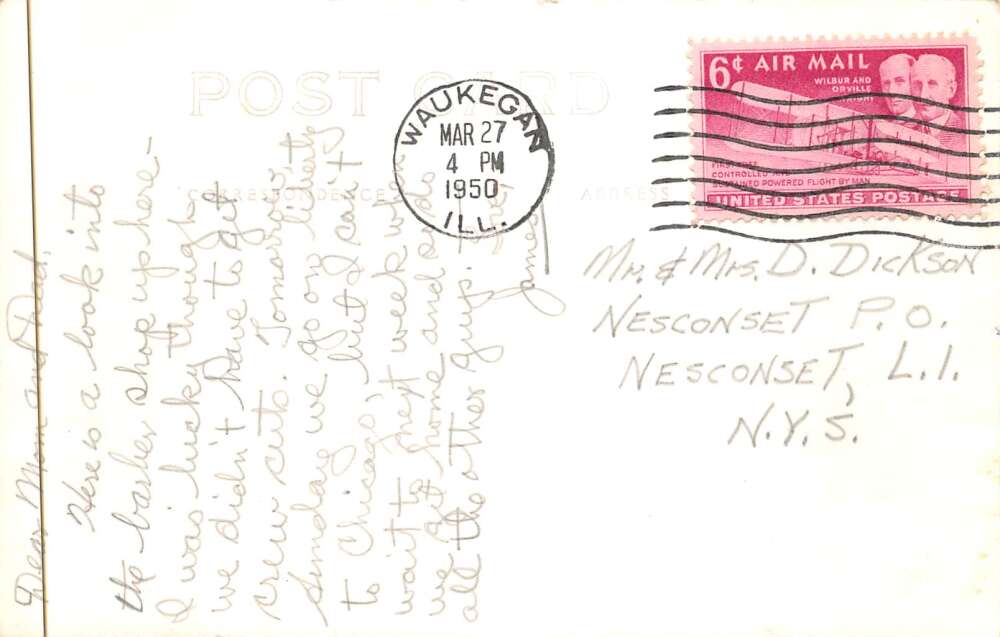 POST CARD
CORRESPONDENCE
ADDRESS
WAUKEGAN
MAR 27
4 PM
1950
ILL.
6¢ AIR MAIL
WILBUR AND
ORVILLE
WRIGHT
FIRST FREE
CONTROLLED AND
SUSTAINED POWERED FLIGHT BY MAN
UNITED STATES POSTAGE
Dear Mom and Dad,
Here is a look into
the barber shop up here-
I was lucky though
we didn't have to get
crew cuts. Tomorrow
Sunday we go on liberty
to Chicago, but I can't
wait to next week when
we get home and so do
all the other guys.
James
Mr. & Mrs. D. Dickson
Nesconset P.O.
Nesconset, L.I.
N.Y.S.